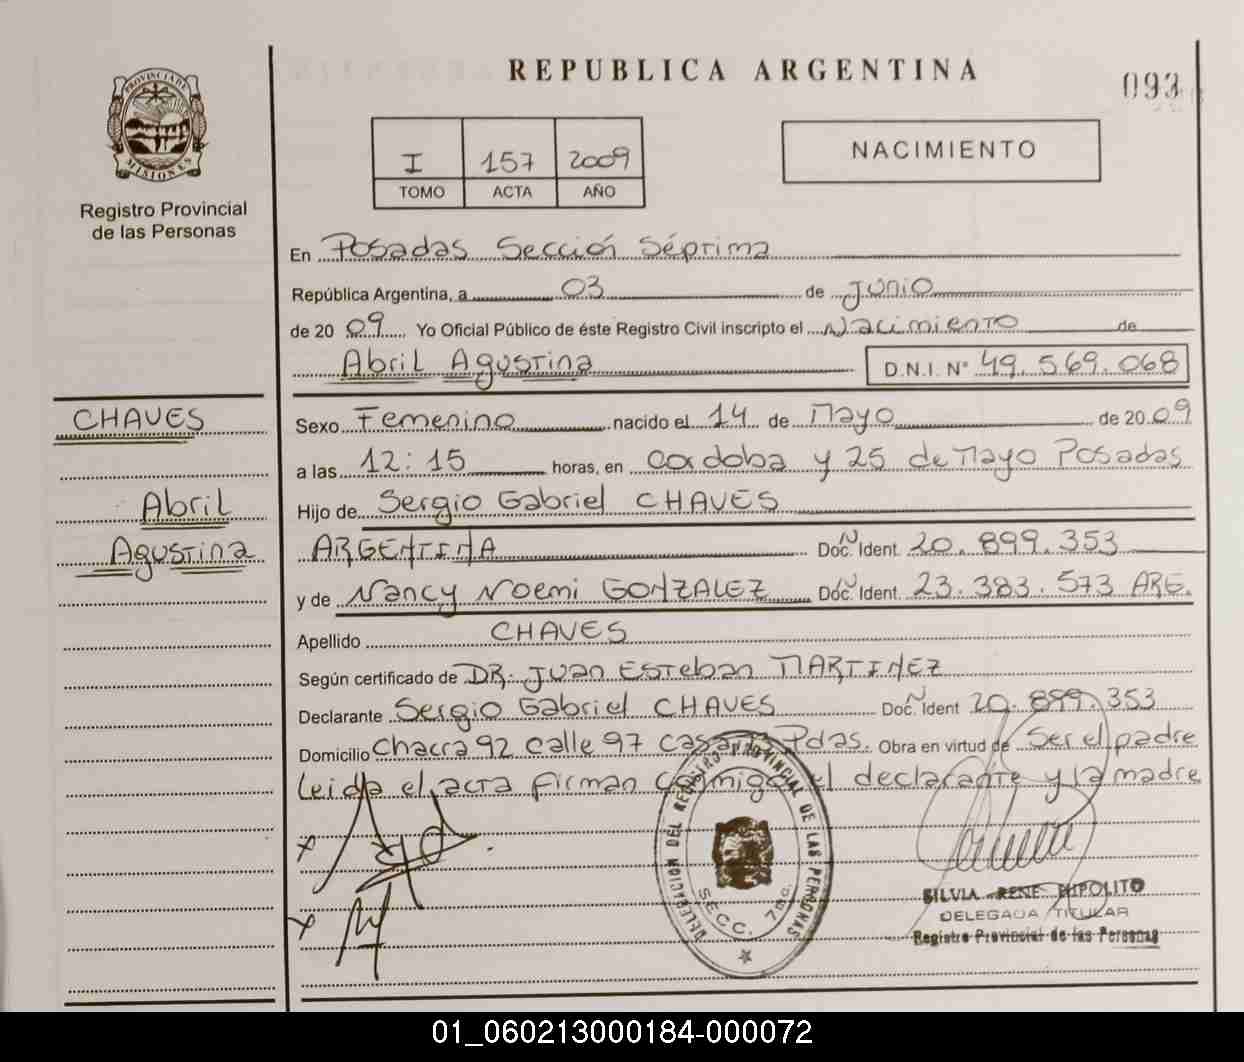 REPUBLICA ARGENTINA
093
PROVINCIA DE
MISIONES
Registro Provincial
de las Personas
I 157 2009
TOMO ACTA AÑO
NACIMIENTO
En Posadas Sección Séptima
República Argentina, a 03 de Junio
de 2009 Yo Oficial Público de éste Registro Civil inscripto el Nacimiento de
Abril Agustina D.N.I. N° 49.569.068
CHAVES
Abril
Agustina
Sexo Femenino nacido el 14 de Mayo de 2009
a las 12:15 horas, en Cordoba y 25 de Mayo Posadas
Hijo de Sergio Gabriel CHAVES
ARGENTINA Doc. Ident. 20.899.353
y de Nancy Noemi GONZALEZ Doc. Ident. 23.383.573 ARG.
Apellido CHAVES
Según certificado de DR. Juan Esteban MARTINEZ
Declarante Sergio Gabriel CHAVES Doc. Ident 20.899.353
Domicilio Chacra 92 calle 97 casa Pdas. Obra en virtud de Ser el padre
Leida el acta firman conmigo el declarante y la madre
DELEGACION DEL REGISTRO PROVINCIAL DE LAS PERSONAS
SECC. 7ma.
SILVIA RENE HIPOLITO
DELEGADA TITULAR
Registro Provincial de las Personas
01_060213000184-000072